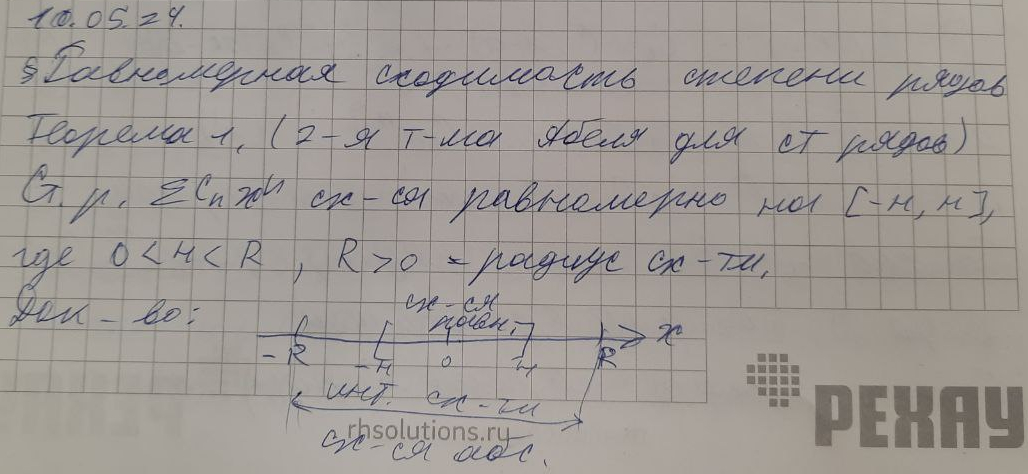 10.05.24.
§ Равномерная сходимость степени рядов
Теорема 1. (2-я т-ма Абеля для ст рядов)
Ст. р. ΣCₙxⁿ сх-ся равномерно на [-н, н],
где 0 < н < R, R > 0 - радиус сх-ти.
Док-во:
сх-ся
равн.
-R -н 0 н R x
инт. сх-ти
rhsolutions.ru
сх-ся абс.
РЕХАУ